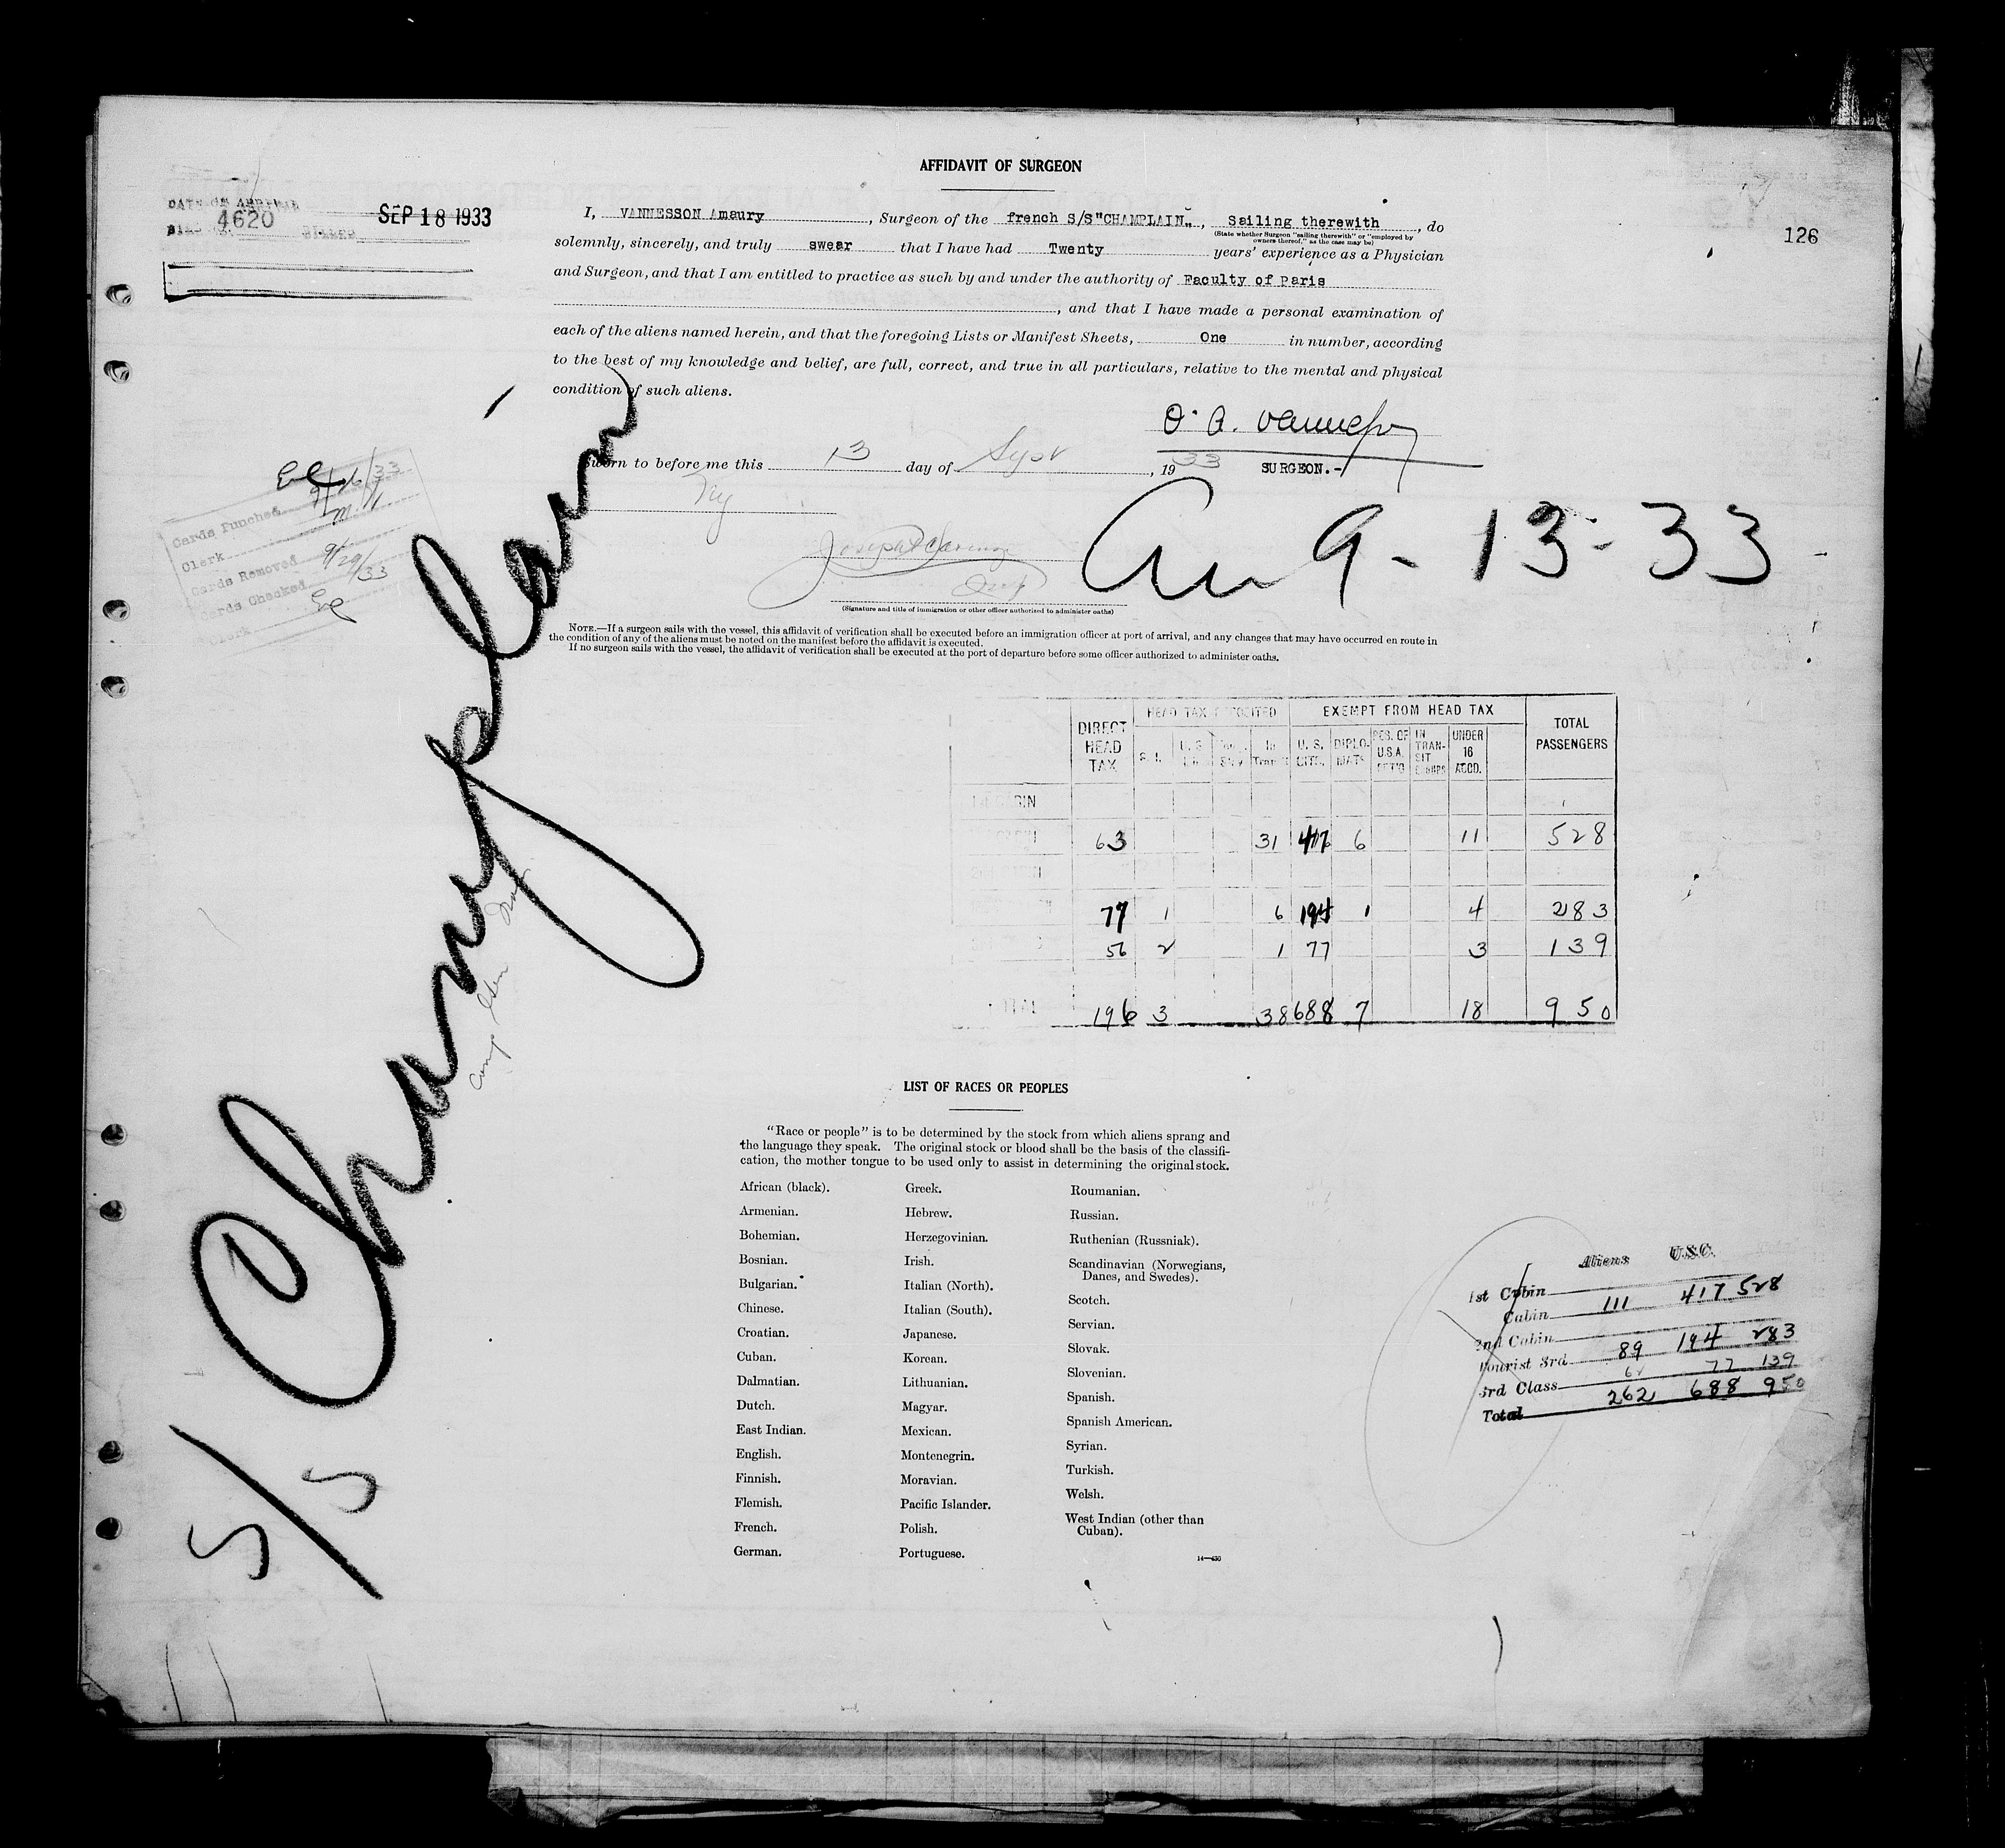 AFFIDAVIT OF SURGEON
DATE OF ARRIVAL
4620
SEP 18 1933
126
I, VANNESSON Amaury, Surgeon of the french S/S"CHAMPLAIN", Sailing therewith, do
(State whether Surgeon "sailing therewith" or "employed by
owners thereof," as the case may be)
solemnly, sincerely, and truly swear that I have had Twenty years' experience as a Physician
and Surgeon, and that I am entitled to practice as such by and under the authority of Faculty of Paris
, and that I have made a personal examination of
each of the aliens named herein, and that the foregoing Lists or Manifest Sheets, One in number, according
to the best of my knowledge and belief, are full, correct, and true in all particulars, relative to the mental and physical
condition of such aliens.
Sworn to before me this 13 day of Sept, 1933
SURGEON.-
NY
9-13-33
(Signature and title of immigration or other officer authorized to administer oaths)
Cards Punched 9/26/33
Clerk
Cards Removed 9/29/33
Cards Checked
Clerk
NOTE.—If a surgeon sails with the vessel, this affidavit of verification shall be executed before an immigration officer at port of arrival, and any changes that may have occurred en route in
the condition of any of the aliens must be noted on the manifest before the affidavit is executed.
If no surgeon sails with the vessel, the affidavit of verification shall be executed at the port of departure before some officer authorized to administer oaths.
S/S Champlain
DIRECT HEAD TAX HEAD TAX DEPOSITED EXEMPT FROM HEAD TAX TOTAL PASSENGERS
In Transit U. S. CITZ. DIPLOMATS RES. OF U.S.A. RET'G IN TRANSIT GROUPS UNDER 16 ACCD.
1st CABIN
63 31 417 6 11 528
2nd CABIN
77 1 6 194 1 4 283
56 2 1 77 3 139
TOTAL 196 3 38 688 7 18 950
LIST OF RACES OR PEOPLES
"Race or people" is to be determined by the stock from which aliens sprang and
the language they speak. The original stock or blood shall be the basis of the classifi-
cation, the mother tongue to be used only to assist in determining the original stock.
African (black).
Armenian.
Bohemian.
Bosnian.
Bulgarian.
Chinese.
Croatian.
Cuban.
Dalmatian.
Dutch.
East Indian.
English.
Finnish.
Flemish.
French.
German.
Greek.
Hebrew.
Herzegovinian.
Irish.
Italian (North).
Italian (South).
Japanese.
Korean.
Lithuanian.
Magyar.
Mexican.
Montenegrin.
Moravian.
Pacific Islander.
Polish.
Portuguese.
Roumanian.
Russian.
Ruthenian (Russniak).
Scandinavian (Norwegians,
Danes, and Swedes).
Scotch.
Servian.
Slovak.
Slovenian.
Spanish.
Spanish American.
Syrian.
Turkish.
Welsh.
West Indian (other than
Cuban).
14—430
Aliens U.S.C.
1st Cabin
Cabin 111 417 528
2nd Cabin
Tourist 3rd 89 194 283
3rd Class 62 77 139
Total 262 688 950